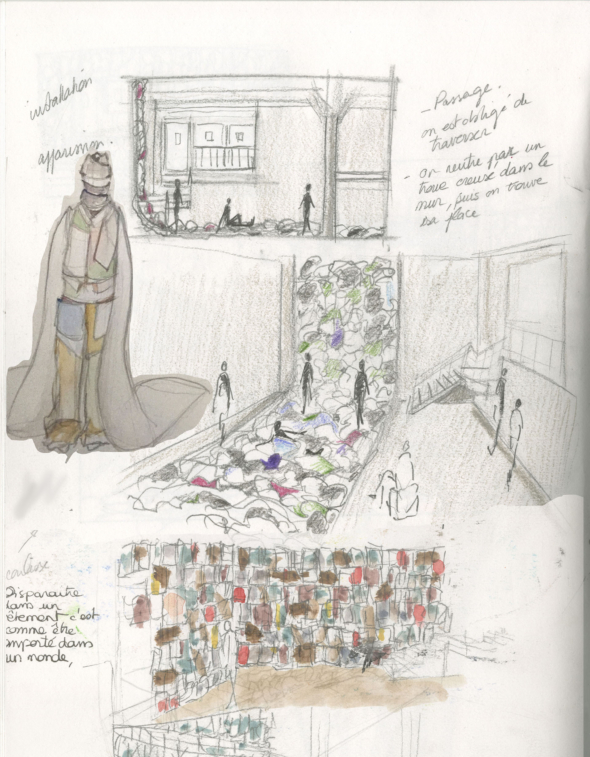 installation
apparition.
- Passage.
on est obligé de
traverser
- on rentre par un
troue creusé dans le
mur, puis on trouve
sa place
coulisse
Disparaitre
dans un
vêtement c'est
comme être
emporté dans
un monde,